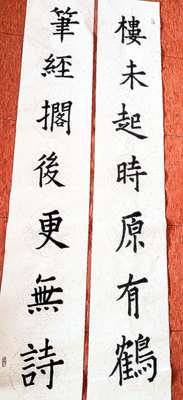 樓未起時原有鶴
筆經擱後更無詩